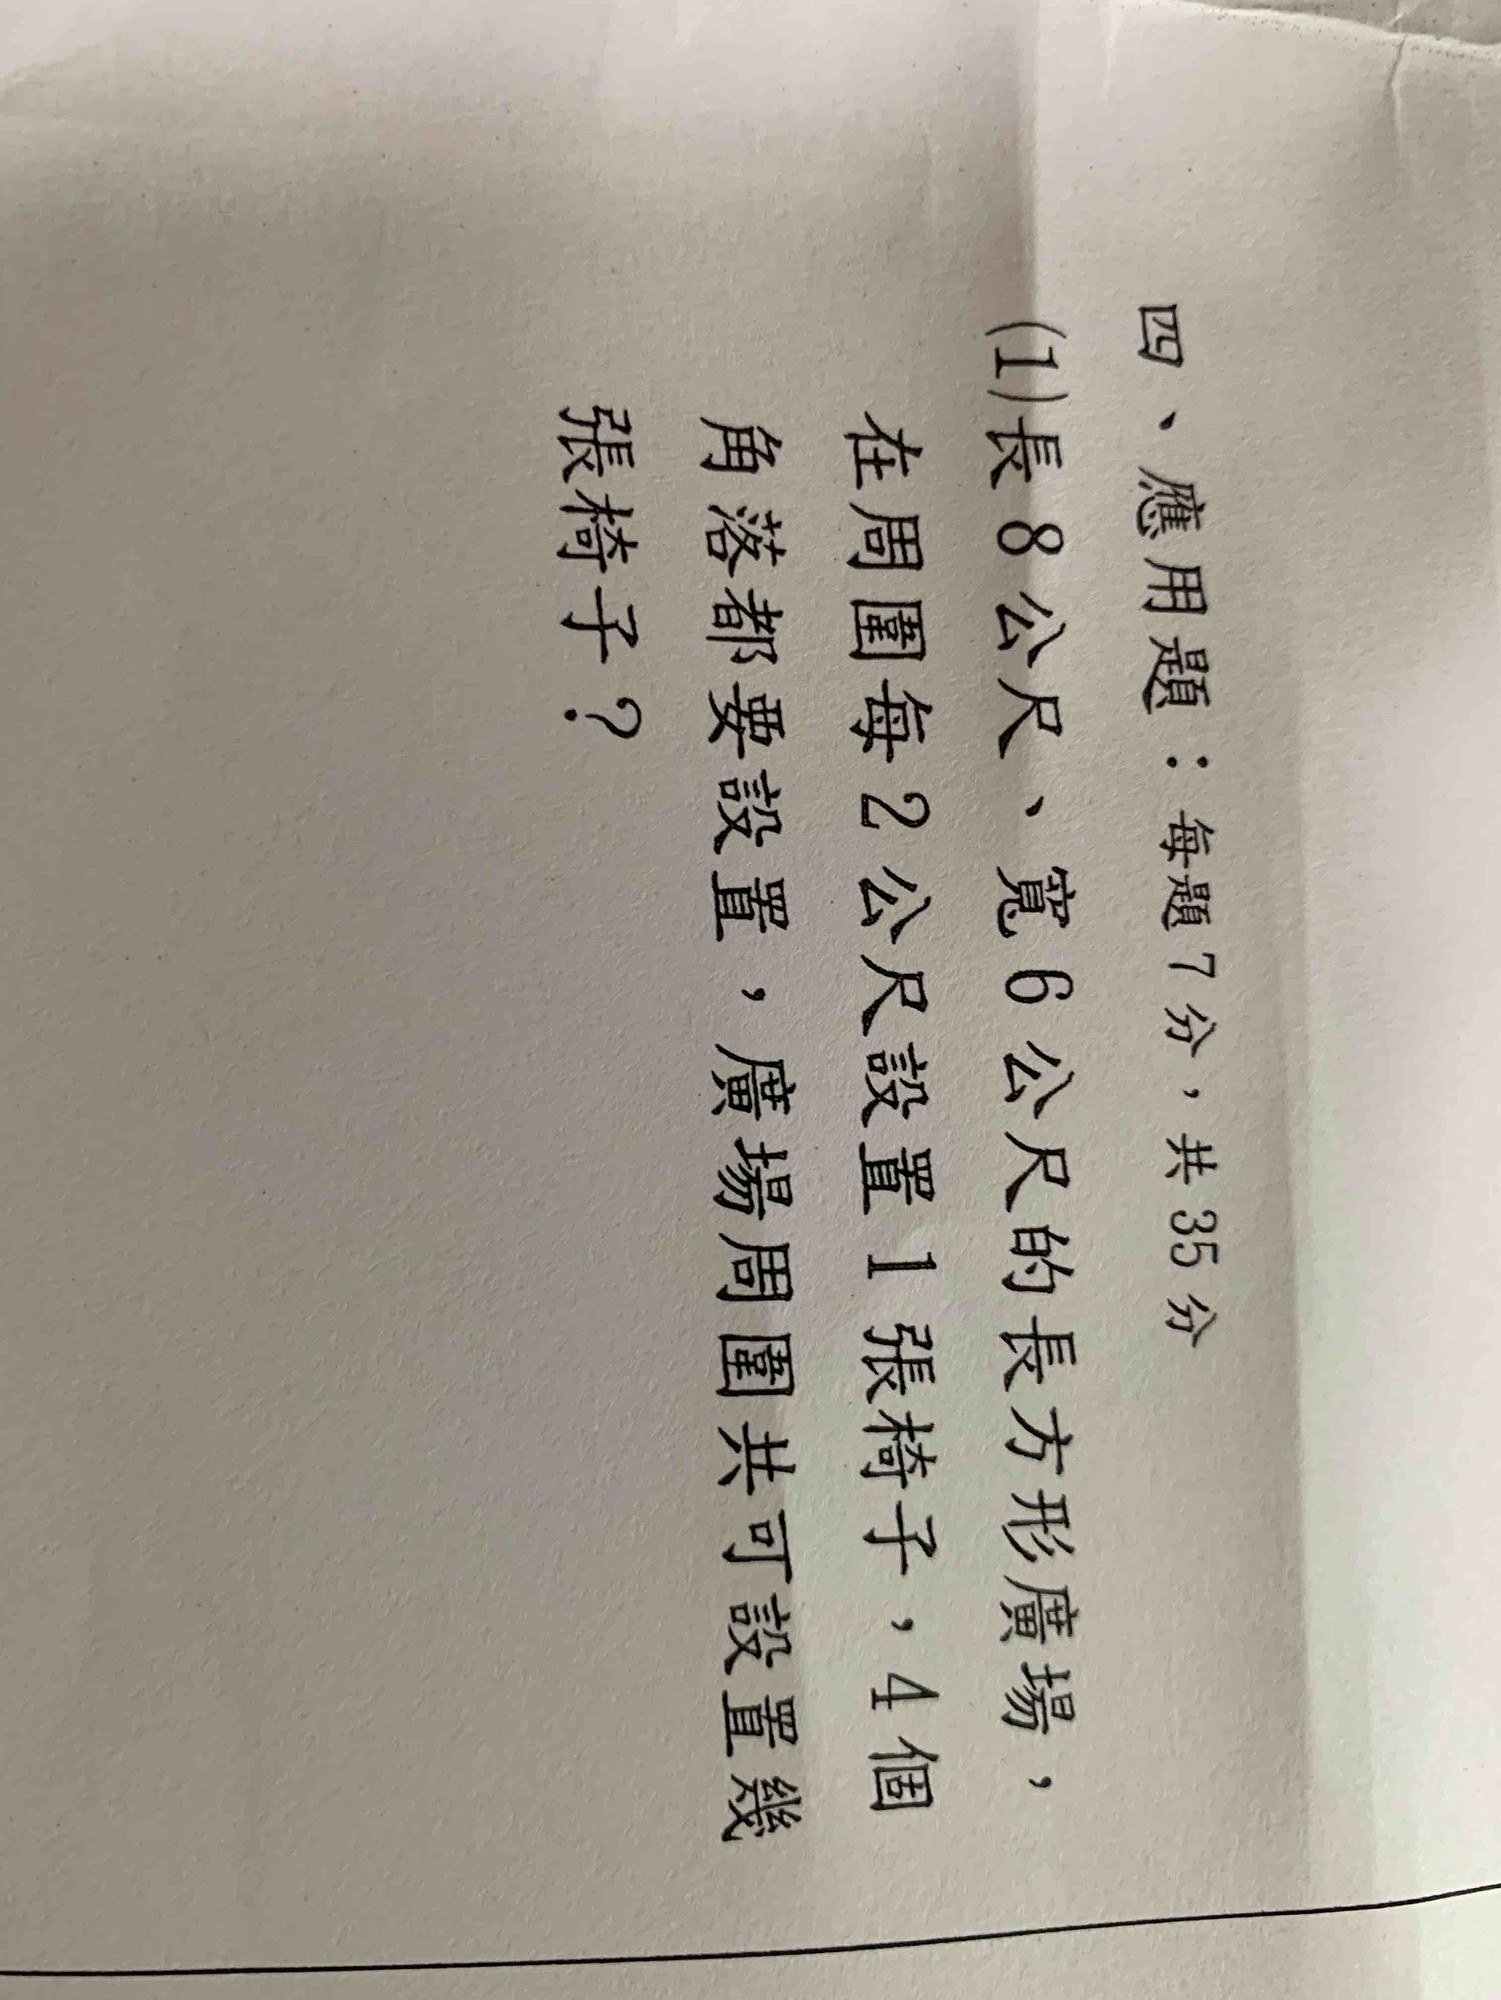 四、應用題：每題7分，共35分
(1)長8公尺、寬6公尺的長方形廣場，
在周圍每2公尺設置1張椅子，4個
角落都要設置，廣場周圍共可設置幾
張椅子？